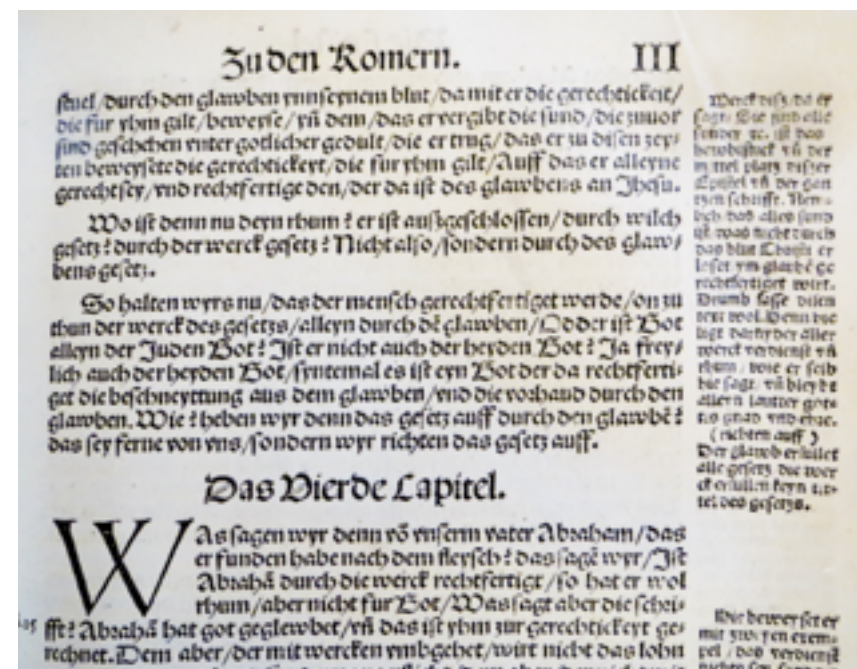 Zu den Romern. III
stuel/durch den glawben ynn seynem blut/da mit er die gerechtickeit/
die fur yhm gilt/beweyse/vñ dem/das er vergibt die sund/die zuuor
sind geschehen vnter gotlicher gedult/die er trug/das er zu disen zey⸗
ten beweysete die gerechtickeyt/die fur yhm gilt/Auff das er alleyne
gerecht sey/vnd rechtfertige den/der da ist des glawbens an Jhesu.
Wo ist denn nu deyn rhum? er ist auszgeschlossen/durch wilch
gesetz? durch der werck gesetz? Nicht also/sondern durch des glaw⸗
bens gesetz.
So halten wyrs nu/das der mensch gerechtfertiget werde/on zu
thun der werck des gesetzs/alleyn durch dē glawben/Odder ist Got
alleyn der Juden Got? Ist er nicht auch der heyden Got? Ja frey⸗
lich auch der heyden Got/syntemal es ist eyn Got der da rechtferti⸗
get die beschneyttung aus dem glawben/vnd die vorhaud durch den
glawben. Wie? heben wyr denn das gesetz auff durch den glawbē?
das sey ferne von vns/sondern wyr richten das gesetz auff.
Das Vierde Capitel.
WAs sagen wyr denn võ vnserm vater Abraham/das
er funden habe nach dem fleysch? das sagē wyr/Ist
Abrahã durch die werck rechtfertigt/so hat er wol
rhum/aber nicht fur Got/Was sagt aber die schri⸗
fft? Abrahã hat got geglewbet/vñ das ist yhm zur gerechtickeyt ge⸗
rechnet. Dem aber/der mit wercken vmbgehet/wirt nicht das lohn
Merck disz/da er
sagt/Sie sind alle
sunder ꝛc. ist das
hewbtstuck vñ der
mittel platz diszer
Epistel vñ der gan
tzen schrifft. Nem⸗
lich das alles sund
ist was nicht durch
das blut Christi er
loset ym glaubē ge
rechtfertiget wirt.
Drumb fasse disen
text wol. Denn hie
ligt darnyder aller
werck verdienst vñ
rhum/wie er selb
hie sagt/vñ bleybt
alleyn lautter gott⸗
is gnad vnd ehre.
(richten auff)
Der glawb erfullet
alle gesetz die wer
ck erfullen keyn tit⸗
tel des gesetzs.
Hie beweyset er
mit zweyen exem⸗
pel/das verdienst